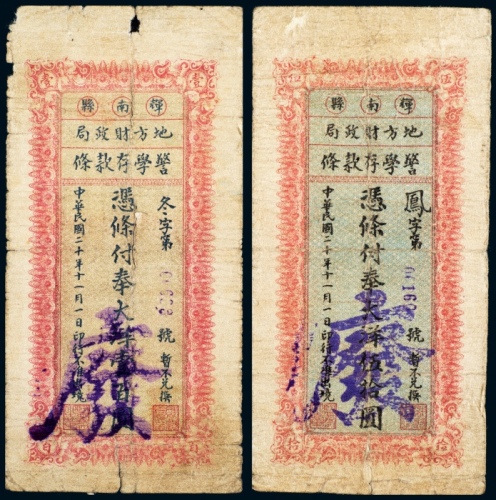 輝南縣
地方財政局
警學存款條
冬字第
號 暫不兌撰
憑條付奉大洋壹百圓
中華民國二十年十一月一日印行不准出境
輝南縣
地方財政局
警學存款條
鳳字第
號 暫不兌撰
憑條付奉大洋伍拾圓
中華民國二十年十一月一日印行不准出境